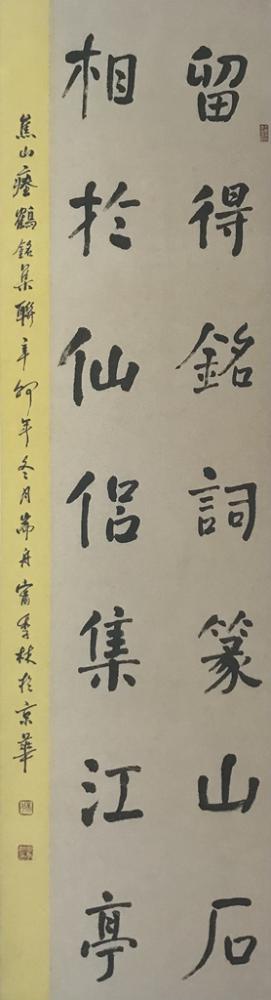 留得銘詞篆山石
相於仙侶集江亭
焦山瘞鶴銘集聯辛卯年冬月蒂舟甯季林於京華